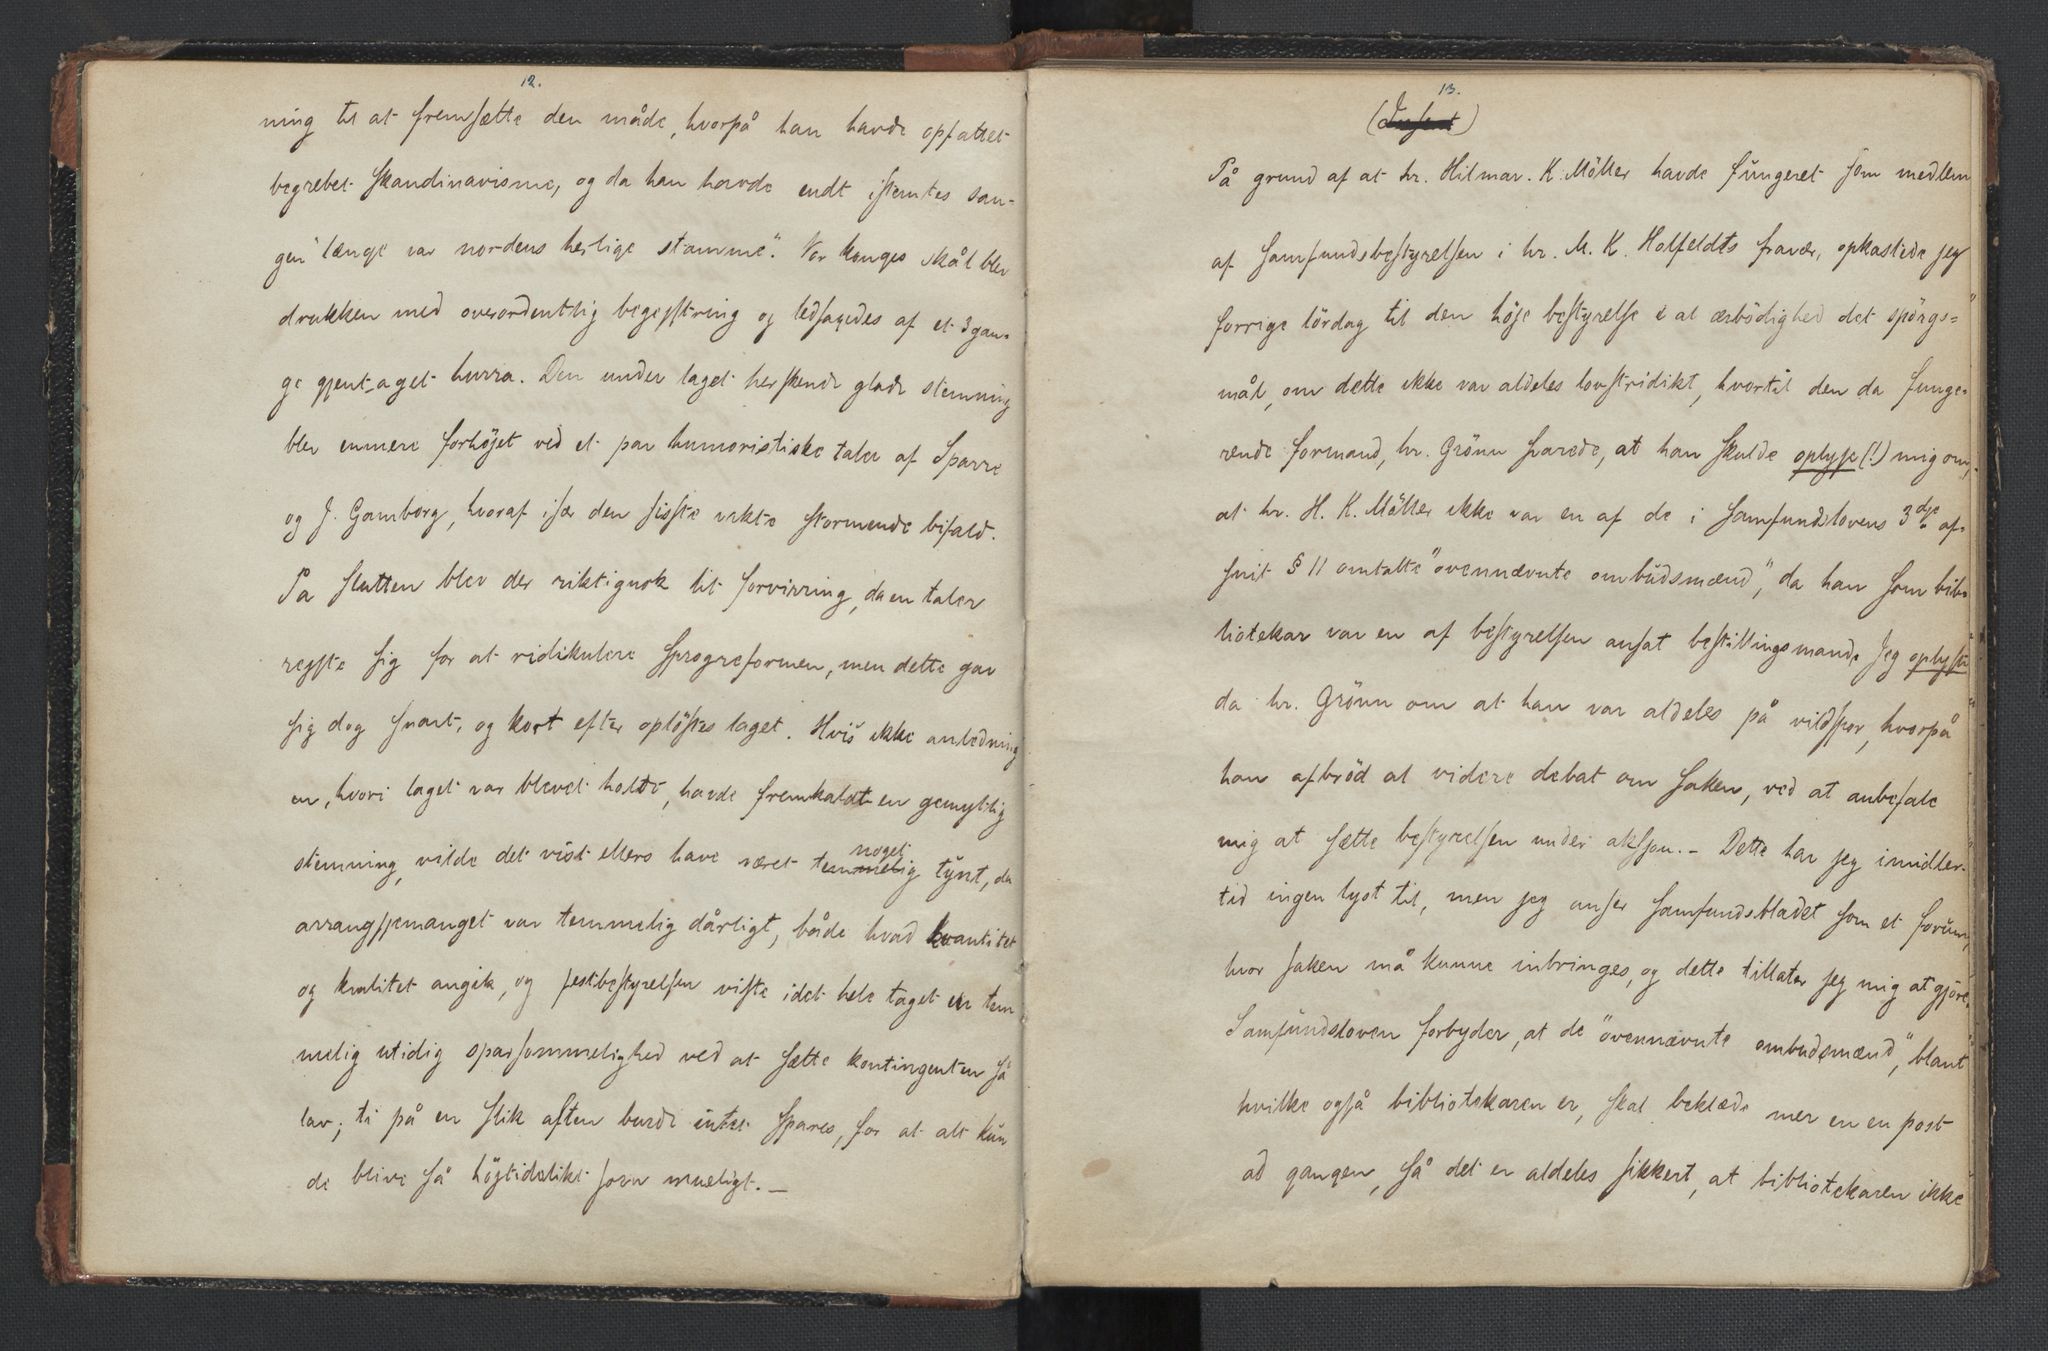 12.
ning til at fremsætte den måde, hvorpå han havde opfattet
begrebet skandinavisme, og da han havde endt istemtes san-
gen "længe var nordens herlige stamme". Vor konges skål blev
drukken med overordentlig begejstring og ledsagedes af et 3 gan-
ge gjentaget hurra. Den under laget herskende glade stemning
blev enmere forhöjet ved et par humoristiske taler af Sparre
og J. Gamborg, hvoraf især den sisste vakte stormende bifald.
På slutten blev der riktignok lit forvirring, da en taler
rejste sig for at ridikulere sprogreformen, men dette gav
sig dog snart, og kort efter oplöstes laget. Hvis ikke anledning
en, hvori laget var blevet holdt, havde fremkaldt en gemytlig
stemning, vilde det vist ellers have været temmelig noget tynt, da
arrangsjemanget var temmelig dårligt, både hvad kvantitet
og kvalitet angik, og festbestyrelsen viste i det hele taget en tem
melig utidig sparsommelighed ved at sætte kontingenten så
lav; ti på en slik aften burde intet spares, for at alt kun
de blive så höjtideligt som mueligt. —
13.
(Insent)
På grund af at hr. Hilmar. K. Möller havde fungeret som medlem
af Samfundsbestyrelsen i hr. M. K. Holfeldts fravær, opkastede jeg
forrige lördag til den höje bestyrelse i al ærbödighed det spörgs=
mål, om dette ikke var aldeles lovstridikt, hvortil den da funge-
rende formand, hr. Grönn svarede, at han skulde oplyse (!) mig om,
at hr. H. K. Möller ikke var en af de i Samfundslovens 3dje af-
snit § 11 omtalte "ovennævnte ombudsmænd", da han som bib-
liotekar var en af bestyrelsen ansat bestillingsmand. Jeg oplyste
da hr. Grönn om at han var aldeles på vildspor, hvorpå
han afbröd al videre debat om saken, ved at anbefale
mig at sætte bestyrelsen under aksjon. – Dette har jeg imidler-
tid ingen lyst til, men jeg anser Samfundsbladet som et forum,
hvor saken må kunne inbringes, og dette tillater jeg mig at gjöre.
Samfundsloven forbyder, at de "ovennævnte ombudsmænd", blant
hvilke også bibliotekaren er, skal beklæde mer en en post
ad gangen, så det er aldeles sikkert, at bibliotekaren ikke